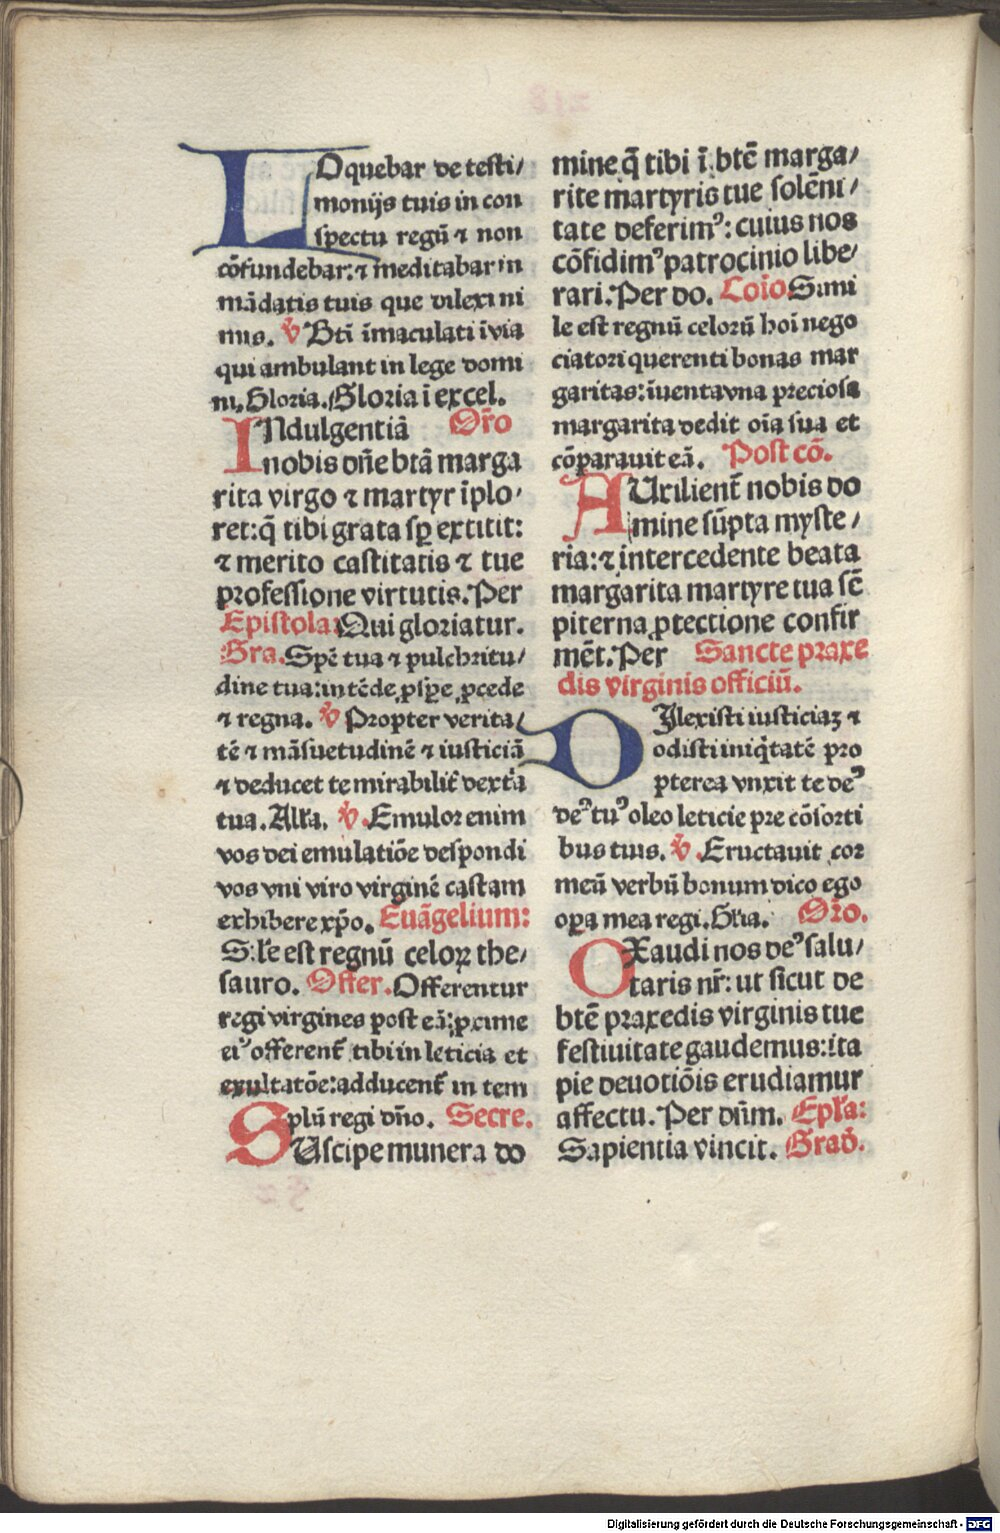 LOquebar de testi/
monijs tuis in con
spectu regũ ⁊ non
cõfundebar: ⁊ meditabar in
mãdatis tuis que dilexi ni
mis. ℣ Bti ĩmaculati ĩ via
qui ambulant in lege domi
ni. Gloria. Gloria ĩ excel.
INdulgentiã Oro
nobis dñe btã marga
rita virgo ⁊ martyr ĩplo/
ret: q̃ tibi grata sꝑ extitit:
⁊ merito castitatis ⁊ tue
professione virtutis. Per
Epistola: Qui gloriatur.
Gra. Spẽ tua ⁊ pulchritu/
dine tua: intẽde ꝓsꝑe ꝓcede
⁊ regna. ℣ Propter verita/
tẽ ⁊ mãsuetudinẽ ⁊ iusticiã
⁊ deducet te mirabilit̃ dext̾a
tua. All'a. ℣. Emulor enim
vos dei emulatiõe despondi
vos vni viro virginẽ castam
exhibere xp̃o. Euãgelium:
Si'le est regnũ celoꝝ the/
sauro. Offer. Offerentur
regi virgines post eã: ꝓxime
eiꝰ offerent̃ tibi in leticia et
exultatõe: adducent̃ in tem
plũ regi dño. Secre.
SUscipe munera do
mine q̃ tibi ĩ btẽ marga/
rite martyris tue solẽni/
tate deferimꝰ: cuius nos
cõfidimꝰ patrocinio libe/
rari. Per do. Coĩo. Simi
le est regnũ celorũ hoĩ nego
ciatori querenti bonas mar
garitas: ĩuenta vna preciosa
margarita dedit oĩa sua et
cõparauit eã. Post cõ.
AUxilient̃ nobis do
mine sũpta myste/
ria: ⁊ intercedente beata
margarita martyre tua sẽ
piterna ꝓtectione confir
mẽt. Per Sancte praxe
dis virginis officiũ.
DIlexisti iusticiaȝ ⁊
odisti iniq̇tatẽ pro
pterea vnxit te deꝰ
deꝰ tuꝰ oleo leticie pre cõsorti
bus tuis. ℣. Eructauit cor
meũ verbũ bonum dico ego
oꝑa mea regi. Gl'ia. Oro.
EXaudi nos deꝰ salu/
taris nr̃: ut sicut de
btẽ praxedis virginis tue
festiuitate gaudemus: ita
pie deuotiõis erudiamur
affectu. Per dñm. Epl'a:
Sapientia vincit. Grad.
Digitalisierung gefördert durch die Deutsche Forschungsgemeinschaft - DFG